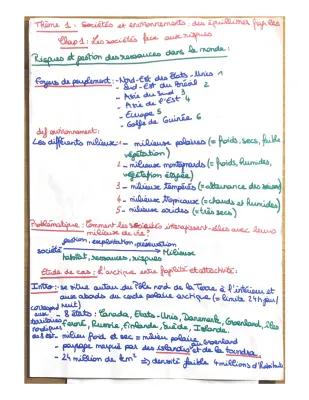 Thème 1 : Sociétés et environnements : des équilibres fragiles
Chap 1 : Les sociétés face aux risques
Risques et gestion des ressources dans le monde :
Foyers de peuplement : - Nord-Est des Etats-Unis 1
- Sud-Est du Brésil 2
- Asie du Sud 3
- Asie de l'Est 4
- Europe 5
- Golfe de Guinée 6
def environnement :
Les différents milieux : 1 - milieux polaires (= froids, secs, faible
végétation)
2 - milieux montagnards (= froids, humides,
végétation étagée)
3 - milieux tempérés (= alternance des saisons)
4 - milieux tropicaux (= chauds et humides)
5 - milieux arides (= très secs)
Problématique : Comment les sociétés interagissent-elles avec leurs
milieux de vie ?
gestion, exploitation, préservation
société Milieux
habitat, ressources, risques
Etude de cas : L'arctique entre fragilité et attractivité :
Intro : se situe autour du Pôle nord de la Terre à l'intérieur et
aux abords du cercle polaire arctique (= limite 24h jour/
nuit - 8 états : Canada, Etats-Unis, Danemark, Groenland, îles
Féroé, Russie, Finlande, Suède, Islande.
- milieu froid et sec = milieu polaire, groenland
- paysage marqué par des islandis et de la toundra.
- 24 million de km² => densité faible 4 millions d'habitants